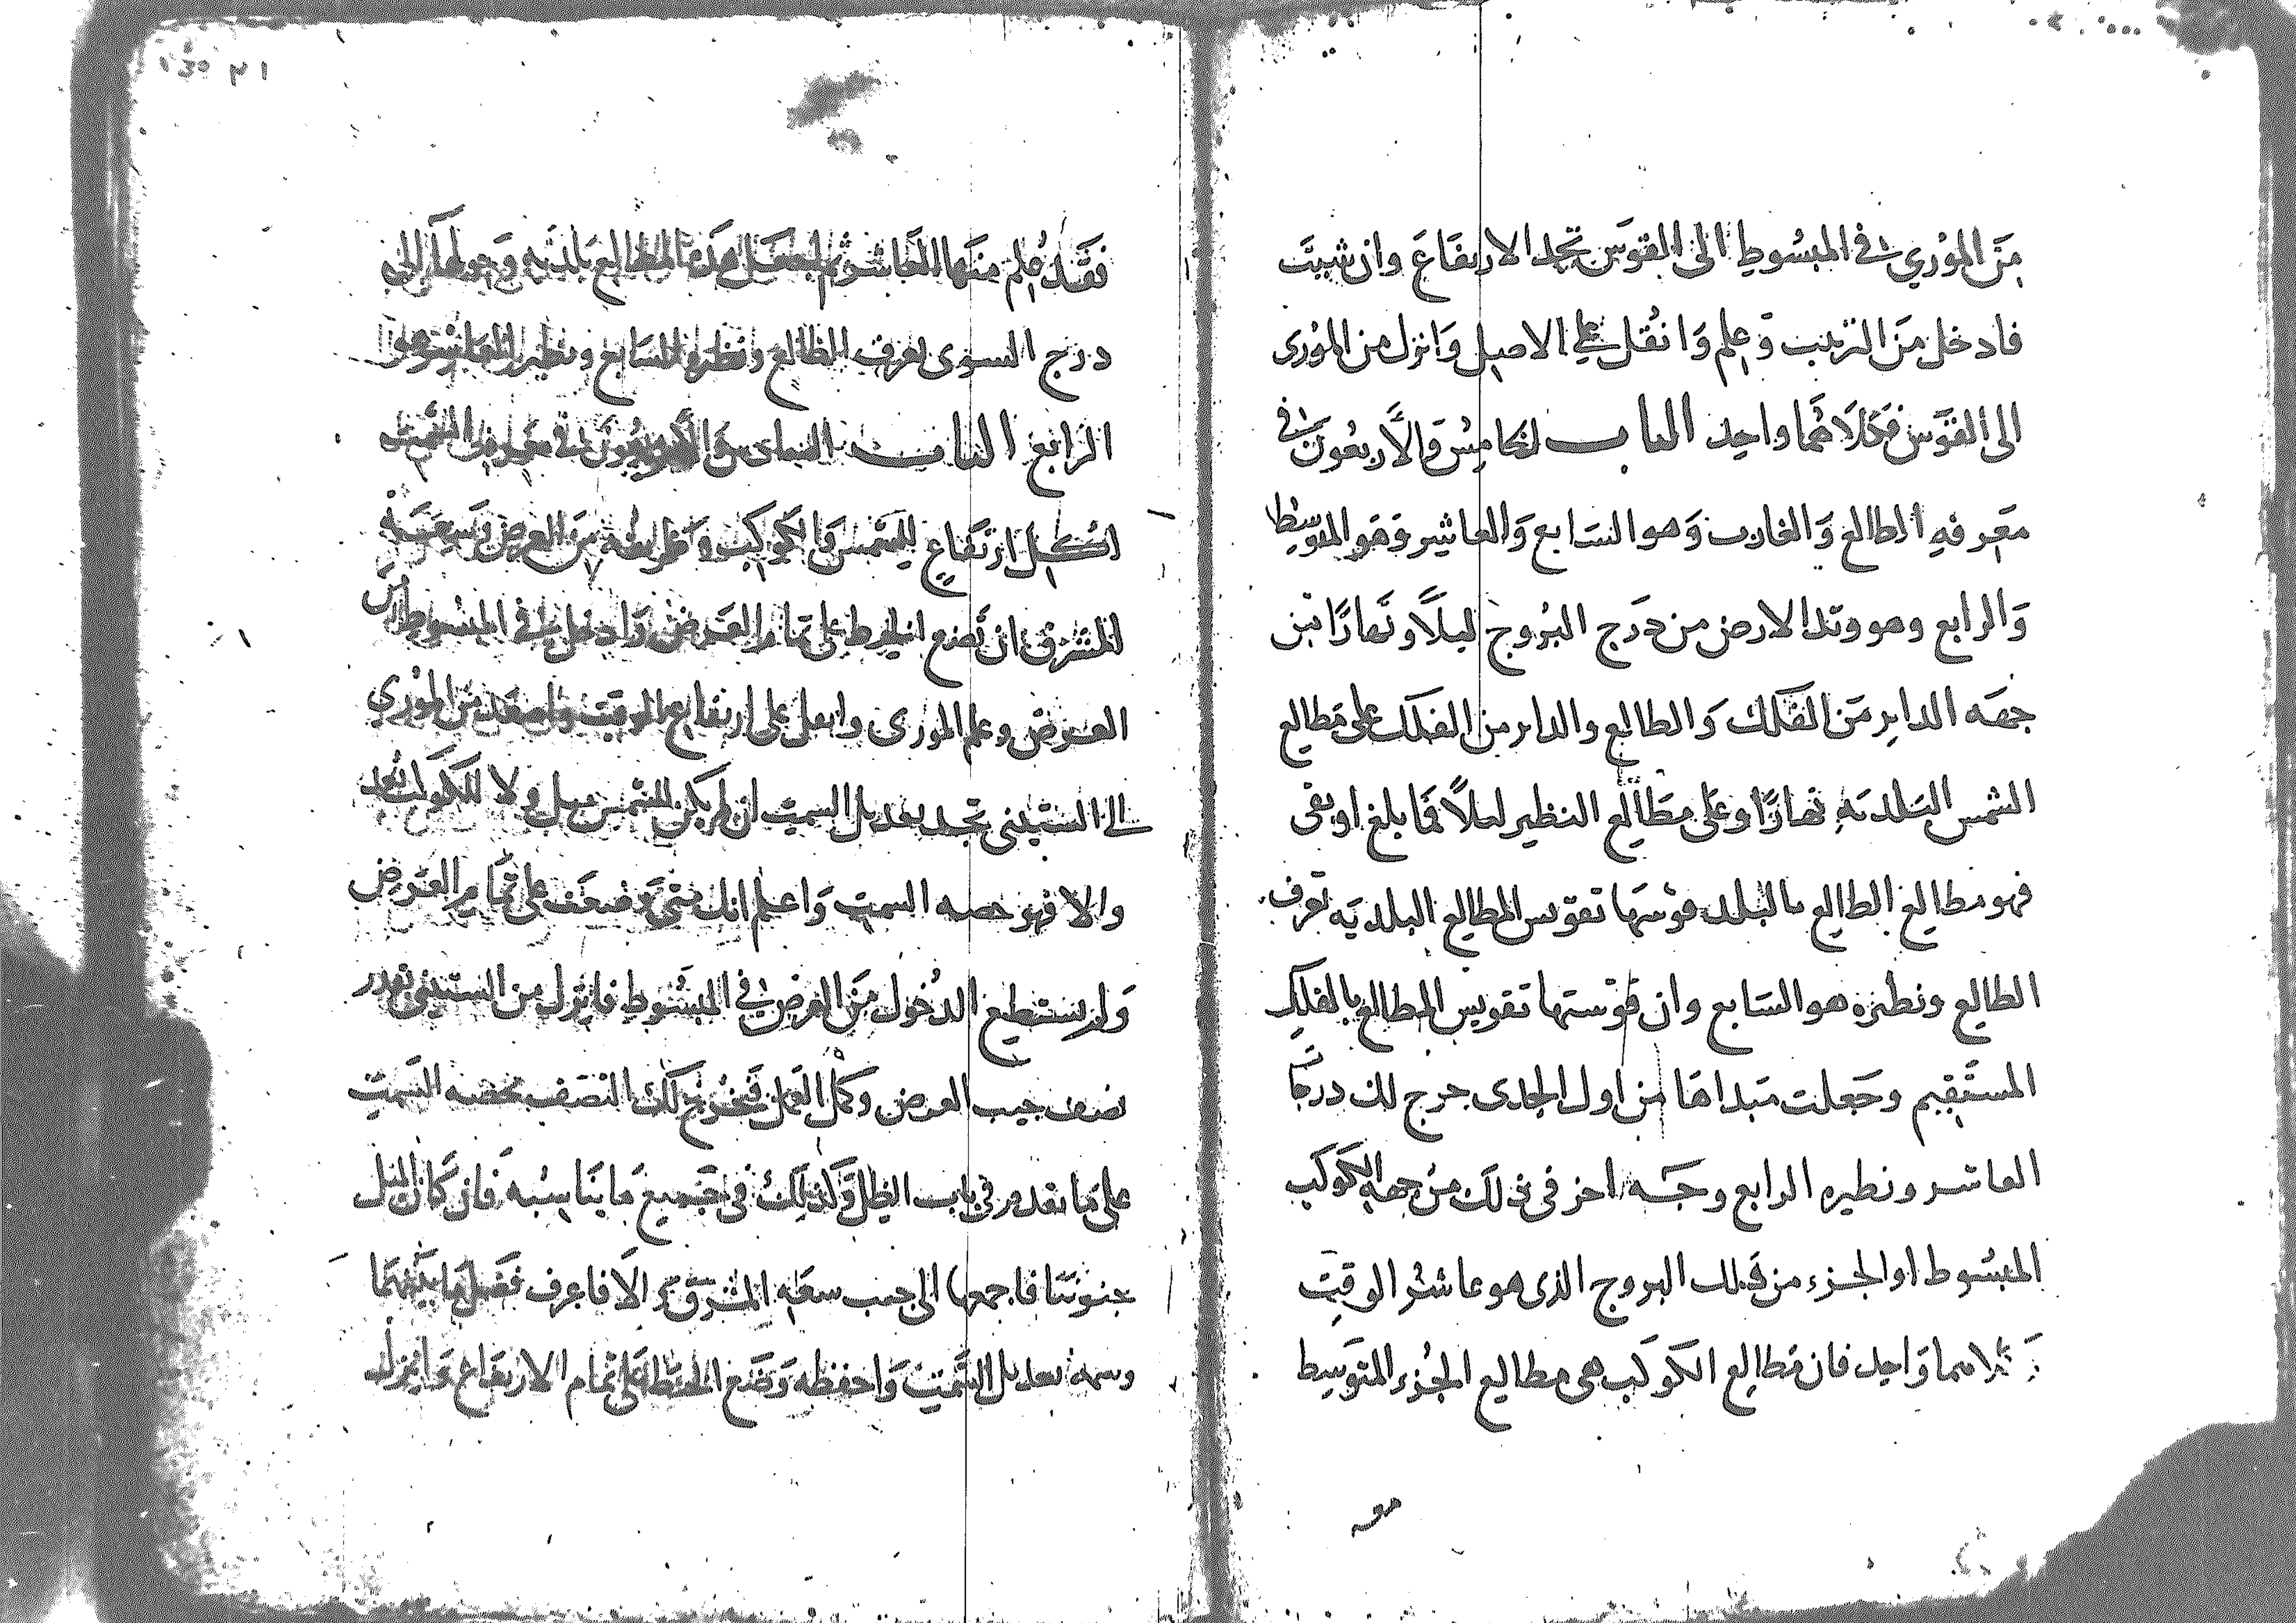 من الموري في المبسوط الى القوس تجد الارتفاع وان شيت
فادخل من الترتيب وعلم وانقل على الاصل وانزل من الموري
الى القوس فكلاهما واحد الباب الخامس والأربعون في
معرفه الطالع والغارب وهو السابع والعاشر وهو المتوسط
والرابع وهو وتد الارض من درج البروج ليلًا ونهارًا من
جهه الداير من الفلك والطالع والداير من الفلك على مطالع
الشمس البلديه نهارًا وعلى مطالع النظير ليلًا فما بلغ او بقى
فهو مطالع الطالع بالبلد قوسها تقويس المطالع البلديه تعرف
الطالع ونظيره هو السابع وان قوستها تقويس المطالع بالفلك
المستقيم وجعلت مبداها من اول الجدى خرج لك درجة
العاشر ونظيره الرابع وجه اخر في ذلك من جهه الكوكب
المبسوط او الجزء من فلك البروج الذى هو عاشر الوقت
كلاهما واحد فان مطالع الكوكب هى مطالع الجزء المتوسط
فقد علم منها العاشر ثم هذه المطالع بلديه وحولها الى
درج السوى تعرف الطالع ونظيره السابع ونظير العاشر هو
الرابع الباب السادس والأربعون في معرفه السمت
لكل ارتفاع للشمس والكوكب وطريقه من العرض وسعة
المشرق ان تضع الخيط على تمام العرض وادخل في المبسوط من
العرض وعلم الموري وانقل على ارتفاع الوقت واصعد من الموري
الى الستيني تجد تعديل السمت ان لم يكن للشمس ميل ولا للكوكب بعد
والا فهو حصه السمت واعلم انك متى وضعت على تمام العرض
ولم يستطيع الدخول من العرض في المبسوط فانزل من الستيني بقدر
نصف جيب العرض وكمل العمل فيخرج لك النصف بحصه السمت
على ما تقدم في باب الظل وكذلك في جميع ما يناسبه فان كان الميل
جنوبيا فاجمعها الى جيب سعه المشرق والا فاعرف فضل ما بينهما
وسمه تعديل السمت واحفظه وضع الخيط على تمام الارتفاع وانزل